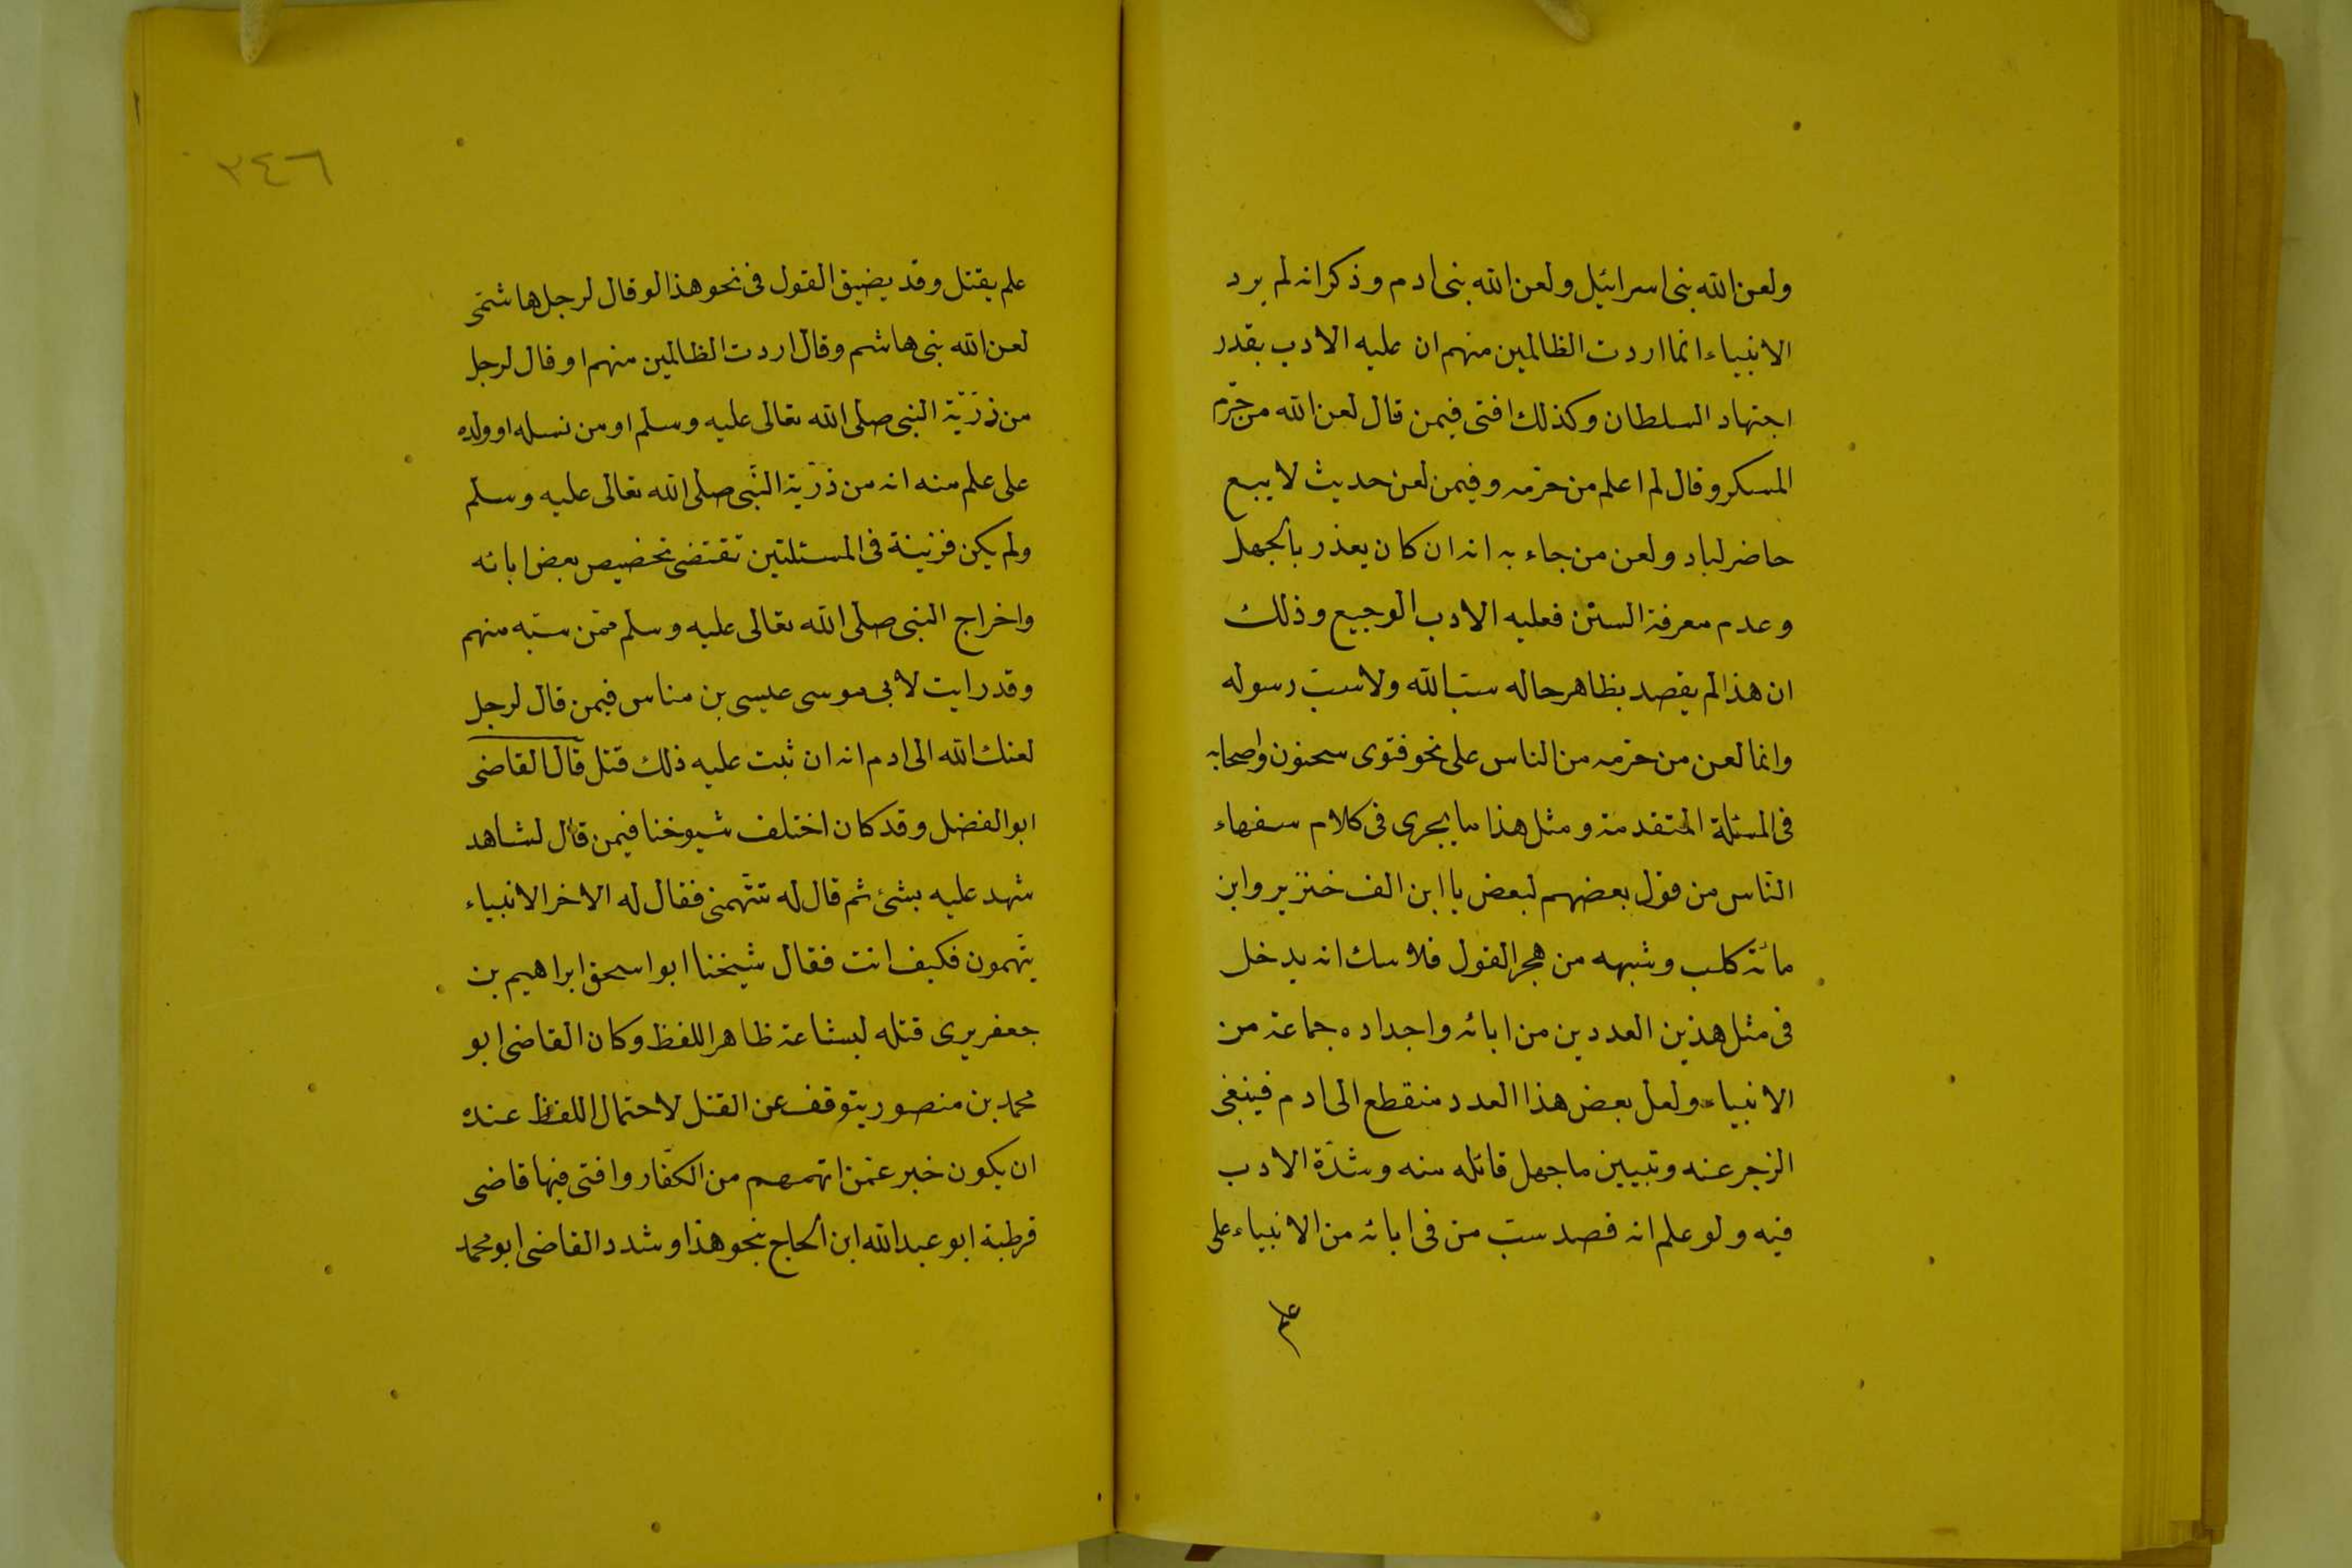 ولعن الله بنى اسرائيل ولعن الله بنى ادم وذكر انه لم يرد
الانبياء انما اردت الظالمين منهم ان عليه الادب بقدر
اجتهاد السلطان وكذلك افتى فيمن قال لعن الله من حرّم
المسكر وقال لم اعلم من حرّمه وفيمن لعن حديث لا يبع
حاضر لباد ولعن من جاء به انه ان كان يعذر بالجهل
وعدم معرفة السنن فعليه الادب الوجيع وذلك
ان هذا لم يقصد بظاهر حاله سبّ الله ولا سبّ رسوله
وانما لعن من حرّمه من الناس على نحو فتوى سحنون واصحابه
فى المسئلة المتقدمة ومثل هذا ما يجرى فى كلام سفهاء
النّاس من قول بعضهم لبعض يا ابن الف خنزير وابن
مائة كلب وشبهه من هجر القول فلا سك انه يدخل
فى مثل هذين العددين من ابائه واجداده جماعة من
الانبياء ولعل بعض هذا العدد منقطع الى ادم فينبغى
الزجر عنه وتبيين ما جهل قائله منه وشدّة الادب
فيه ولو علم انه قصد سبّ من فى ابائه من الانبياء على
علم
٣٤٦
علم يقتل وقد يضيق القول فى نحو هذا لو قال لرجل هاشمّى
لعن الله بنى هاشم وقال اردت الظالمين منهم او قال لرجل
من ذرّيّة النبى صلى الله تعالى عليه وسلم او من نسله او ولده
على علم منه انه من ذرّية النّبى صلى الله تعالى عليه وسلم
ولم يكن قرينة فى المسئلتين تقتضى تخصيص بعض ابائه
واخراج النبى صلى الله تعالى عليه وسلم ممّن سبّه منهم
وقد رايت لابى موسى عيسى بن مناس فيمن قال لرجل
لعنك الله الى ادم انه ان ثبت عليه ذلك قتل قال القاضى
ابو الفضل وقد كان اختلف شيوخنا فيمن قال لشاهد
شهد عليه بشئ ثم قال له تتّهمنى فقال له الاخر الانبياء
يتّهمون فكيف انت فقال شيخنا ابو اسحق ابراهيم بن
جعفر يرى قتله لبشاعة ظاهر اللفظ وكان القاضى ابو
محمد بن منصور يتوقف عن القتل لاحتمال اللفظ عنده
ان يكون خبر عمّن اتهمهم من الكفّار وافتى فيها قاضى
قرطبة ابو عبد الله ابن الحاج بنحو هذا وشدد القاضى ابو محمد